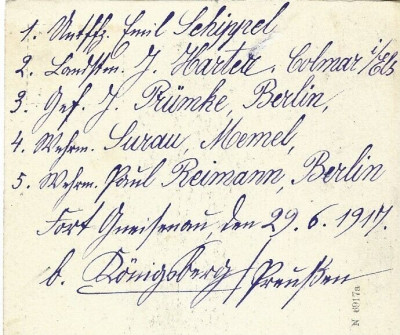 1. Untffz. Emil Schippel
2. Landstm. J. Harter, Colmar i/Els
3. Gef. J. Prümke, Berlin,
4. Wehrm. Surau, Memel,
5. Wehrm. Paul Reimann, Berlin
Fort Gneisenau, den 29.6.1917.
b. Königsberg/Preußen
N 6917a